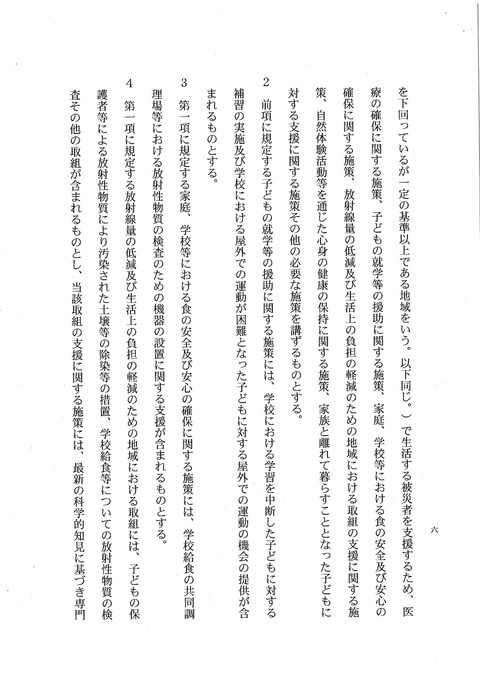 六
を下回っているが一定の基準以上である地域をいう。以下同じ。）で生活する被災者を支援するため、医
療の確保に関する施策、子どもの就学等の援助に関する施策、家庭、学校等における食の安全及び安心の
確保に関する施策、放射線量の低減及び生活上の負担の軽減のための地域における取組の支援に関する施
策、自然体験活動等を通じた心身の健康の保持に関する施策、家族と離れて暮らすこととなった子どもに
対する支援に関する施策その他の必要な施策を講ずるものとする。
２　前項に規定する子どもの就学等の援助に関する施策には、学校における学習を中断した子どもに対する
補習の実施及び学校における屋外での運動が困難となった子どもに対する屋外での運動の機会の提供が含
まれるものとする。
３　第一項に規定する家庭、学校等における食の安全及び安心の確保に関する施策には、学校給食の共同調
理場等における放射性物質の検査のための機器の設置に関する支援が含まれるものとする。
４　第一項に規定する放射線量の低減及び生活上の負担の軽減のための地域における取組には、子どもの保
護者等による放射性物質により汚染された土壌等の除染等の措置、学校給食等についての放射性物質の検
査その他の取組が含まれるものとし、当該取組の支援に関する施策には、最新の科学的知見に基づき専門